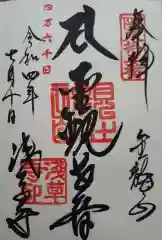 奉拝
金龍山
聖観世音
浅草寺
四万六千日
令和四年
七月十日
浅草